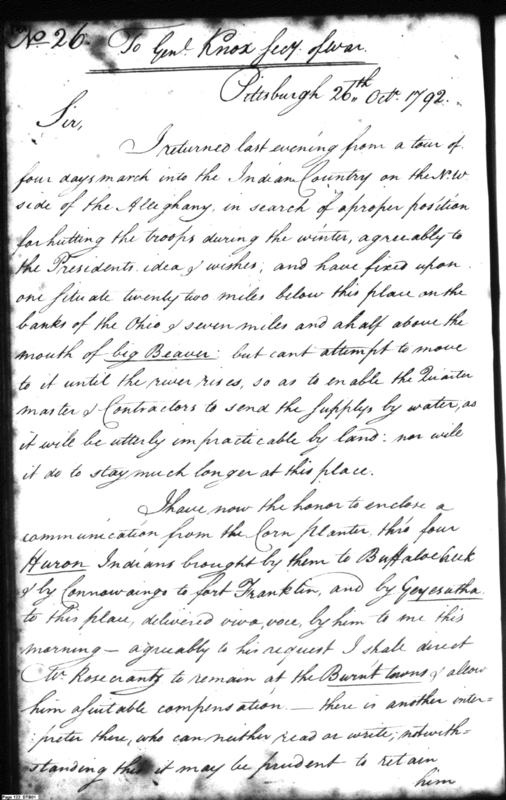 No. 26. To Genl. Knox Secy. of War.
Pittsburgh 26th. Octr. 1792.
Sir,
I returned last evening from a tour of
four days march into the Indian Country on the N. W
side of the Alleghany, in search of a proper position
for hutting the troops during the winter, agreeably to
the Presidents idea & wishes; and have fixed upon
one situate twenty two miles below this place on the
banks of the Ohio & seven miles and a half above the
mouth of big Beaver: but cant attempt to move
to it until the river rises, so as to enable the Quarter
master & Contractors to send the supplys by water, as
it will be utterly impracticable by land: nor will
it do to stay much longer at this place.
I have now the honor to enclose a
communication from the Corn planter, thro four
Huron Indians brought by them to Buffaloe Creek
& by Connowaingo to fort Franklin, and by Geyesutha
to this place, delivered viva, voce, by him to me this
morning — agreably to his request I shall direct
Mr. Rosecrantz to remain at the Burnt towns & allow
him a suitable compensation. — there is another inter=
:preter there, who can neither read or write; notwith=
:standing this it may be prudent to retain
him